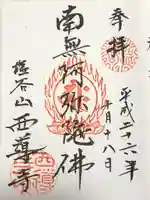 奉拝
平成二十六年
十月十八日
南無阿弥陀佛
谷山
西蓮寺